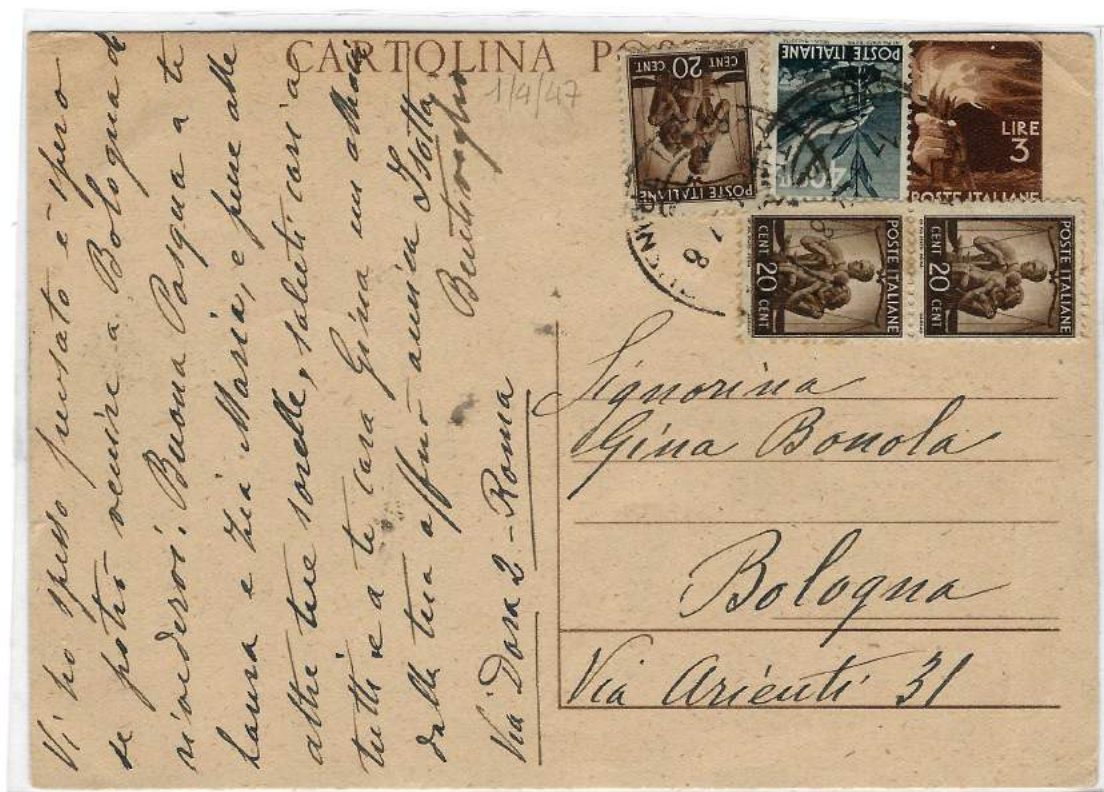 CARTOLINA PO
1/4/47
CENT. 20
POSTE ITALIANE
POSTE ITALIANE
40
LIRE
3
POSTE ITALIANE
POSTE ITALIANE
CENT 20 CENT
POSTE ITALIANE
CENT 20 CENT
Vi ho spesso pensato e spero
se potrò venire a Bologna di
rivedervi. Buona Pasqua a te
Laura e Zia Maria, e pure alle
altre tue sorelle, saluti cari a
tutti e a te cara Gina un
dalla tua aff.ma amica Isotta
Bentivoglio
Via Dora 2 - Roma
Signorina
Gina Bonola
Bologna
Via Arienti 31